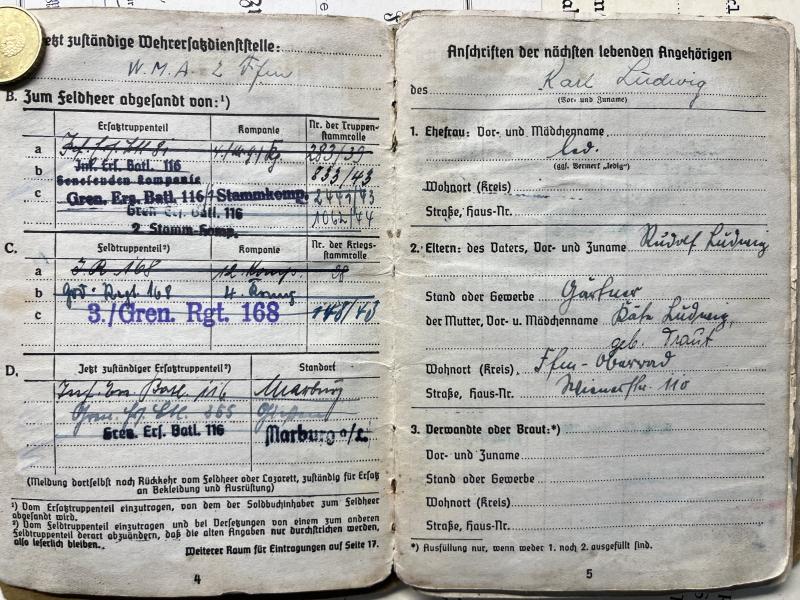 Jetzt zuständige Wehrersatzdienststelle:
W.M.A. 2 Ffm
B. Zum Feldheer abgesandt von:¹)
Ersatztruppenteil Kompanie Nr. der Truppenstammrolle
a 283/39
b Inf. Ers. Batl. 116 833/43
Genesenden Kompanie
c Gren. Ers. Batl. 116 Stammkomp. 2441/43
Gren. Ers. Batl. 116 1062/44
2. Stamm-Komp.
C. Feldtruppenteil²) Kompanie Nr. der Kriegsstammrolle
a I.R. 168 12. Komp 98
b Gren. Regt. 168 4. Komp
c 3./Gren. Rgt. 168 148/43
D. Jetzt zuständiger Ersatztruppenteil²) Standort
Inf. Ers. Batl. 116 Marburg
Gren. Ers. Btl.
Gren. Ers. Batl. 116 Marburg a/L.
(Meldung dortselbst nach Rückkehr vom Feldheer oder Lazarett, zuständig für Ersatz
an Bekleidung und Ausrüstung)
¹) Vom Ersatztruppenteil einzutragen, von dem der Soldbuchinhaber zum Feldheer
abgesandt wird.
²) Vom Feldtruppenteil einzutragen und bei Versetzungen von einem zum anderen
Feldtruppenteil derart abzuändern, daß die alten Angaben nur durchstrichen werden,
also leserlich bleiben.
Weiterer Raum für Eintragungen auf Seite 17.
4
Anschriften der nächsten lebenden Angehörigen
des Karl Ludwig
(Vor- und Zuname)
1. Ehefrau: Vor- und Mädchenname
led.
(ggf. Vermerk „ledig“)
Wohnort (Kreis)
Straße, Haus-Nr.
2. Eltern: des Vaters, Vor- und Zuname Rudolf Ludwig
Stand oder Gewerbe Gärtner
der Mutter, Vor- u. Mädchenname Käte Ludwig,
geb. Traut
Wohnort (Kreis) Ffm-Oberrad
Straße, Haus-Nr. Wienerstr. 110
3. Verwandte oder Braut:*)
Vor- und Zuname
Stand oder Gewerbe
Wohnort (Kreis)
Straße, Haus-Nr.
*) Ausfüllung nur, wenn weder 1. noch 2. ausgefüllt sind.
5